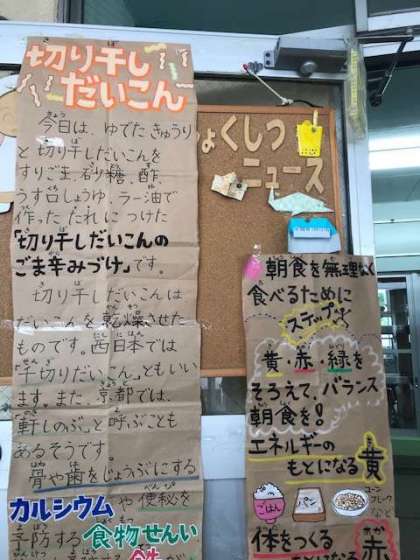 切り干し
だいこん
今日は、ゆでたきゅうり
と切り干しだいこんを
すりごま、砂糖、酢、
うす口しょうゆ、ラー油で
作ったたれにつけた
「切り干しだいこんの
ごま辛みづけ」です。
切り干しだいこんは
だいこんを乾燥させた
ものです。西日本では
「千切りだいこん」ともいい
ます。また、京都では、
「軒しのぶ」と呼ぶことも
あるそうです。
骨や歯をじょうぶにする
カルシウム や便秘を
予防する食物せんい
鉄
ょくしつ
ニュース
朝食を無理なく
食べるために
ステップ
黄・赤・緑を
そろえて、バランス
朝食を!
エネルギーの
もとになる黄
ごはん
パン
体をつくる
赤